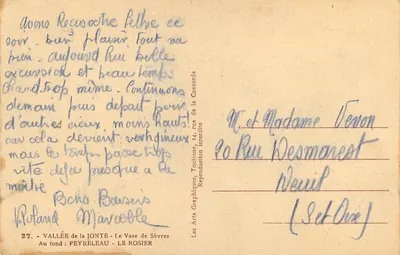 avons Reçu votre lettre ce
soir. bien plaisir tout va
bien. aujourd'hui belle
excursion et beau temps
chaud trop même. Continuons
demain puis départ pour
d'autres cieux, moins hauts
car cela devient vertigineux
mais le temps passe trop
vite déjà presque a la
moitié
Bons Baisers
Roland
27. - VALLÉE de la JONTE - Le Vase de Sèvres
Au fond : PEYRELEAU - LE ROZIER
Les Arts Graphiques, Toulouse, 14, rue de la Concorde
Reproduction interdite
M. et Madame
20 Rue Desmarest
Neuil
(Set Oise)